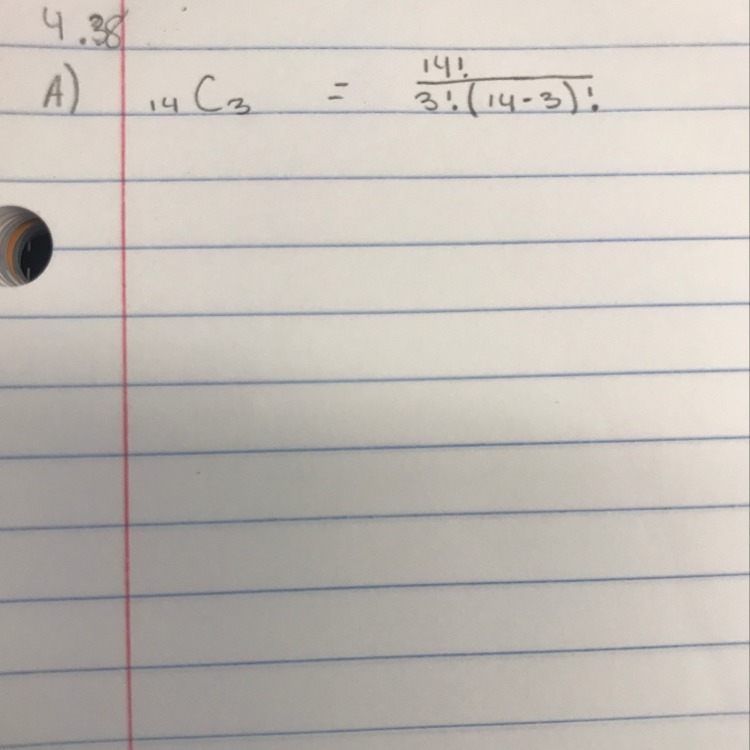 4.38
A) ₁₄C₃ = 14! / 3!(14-3)!